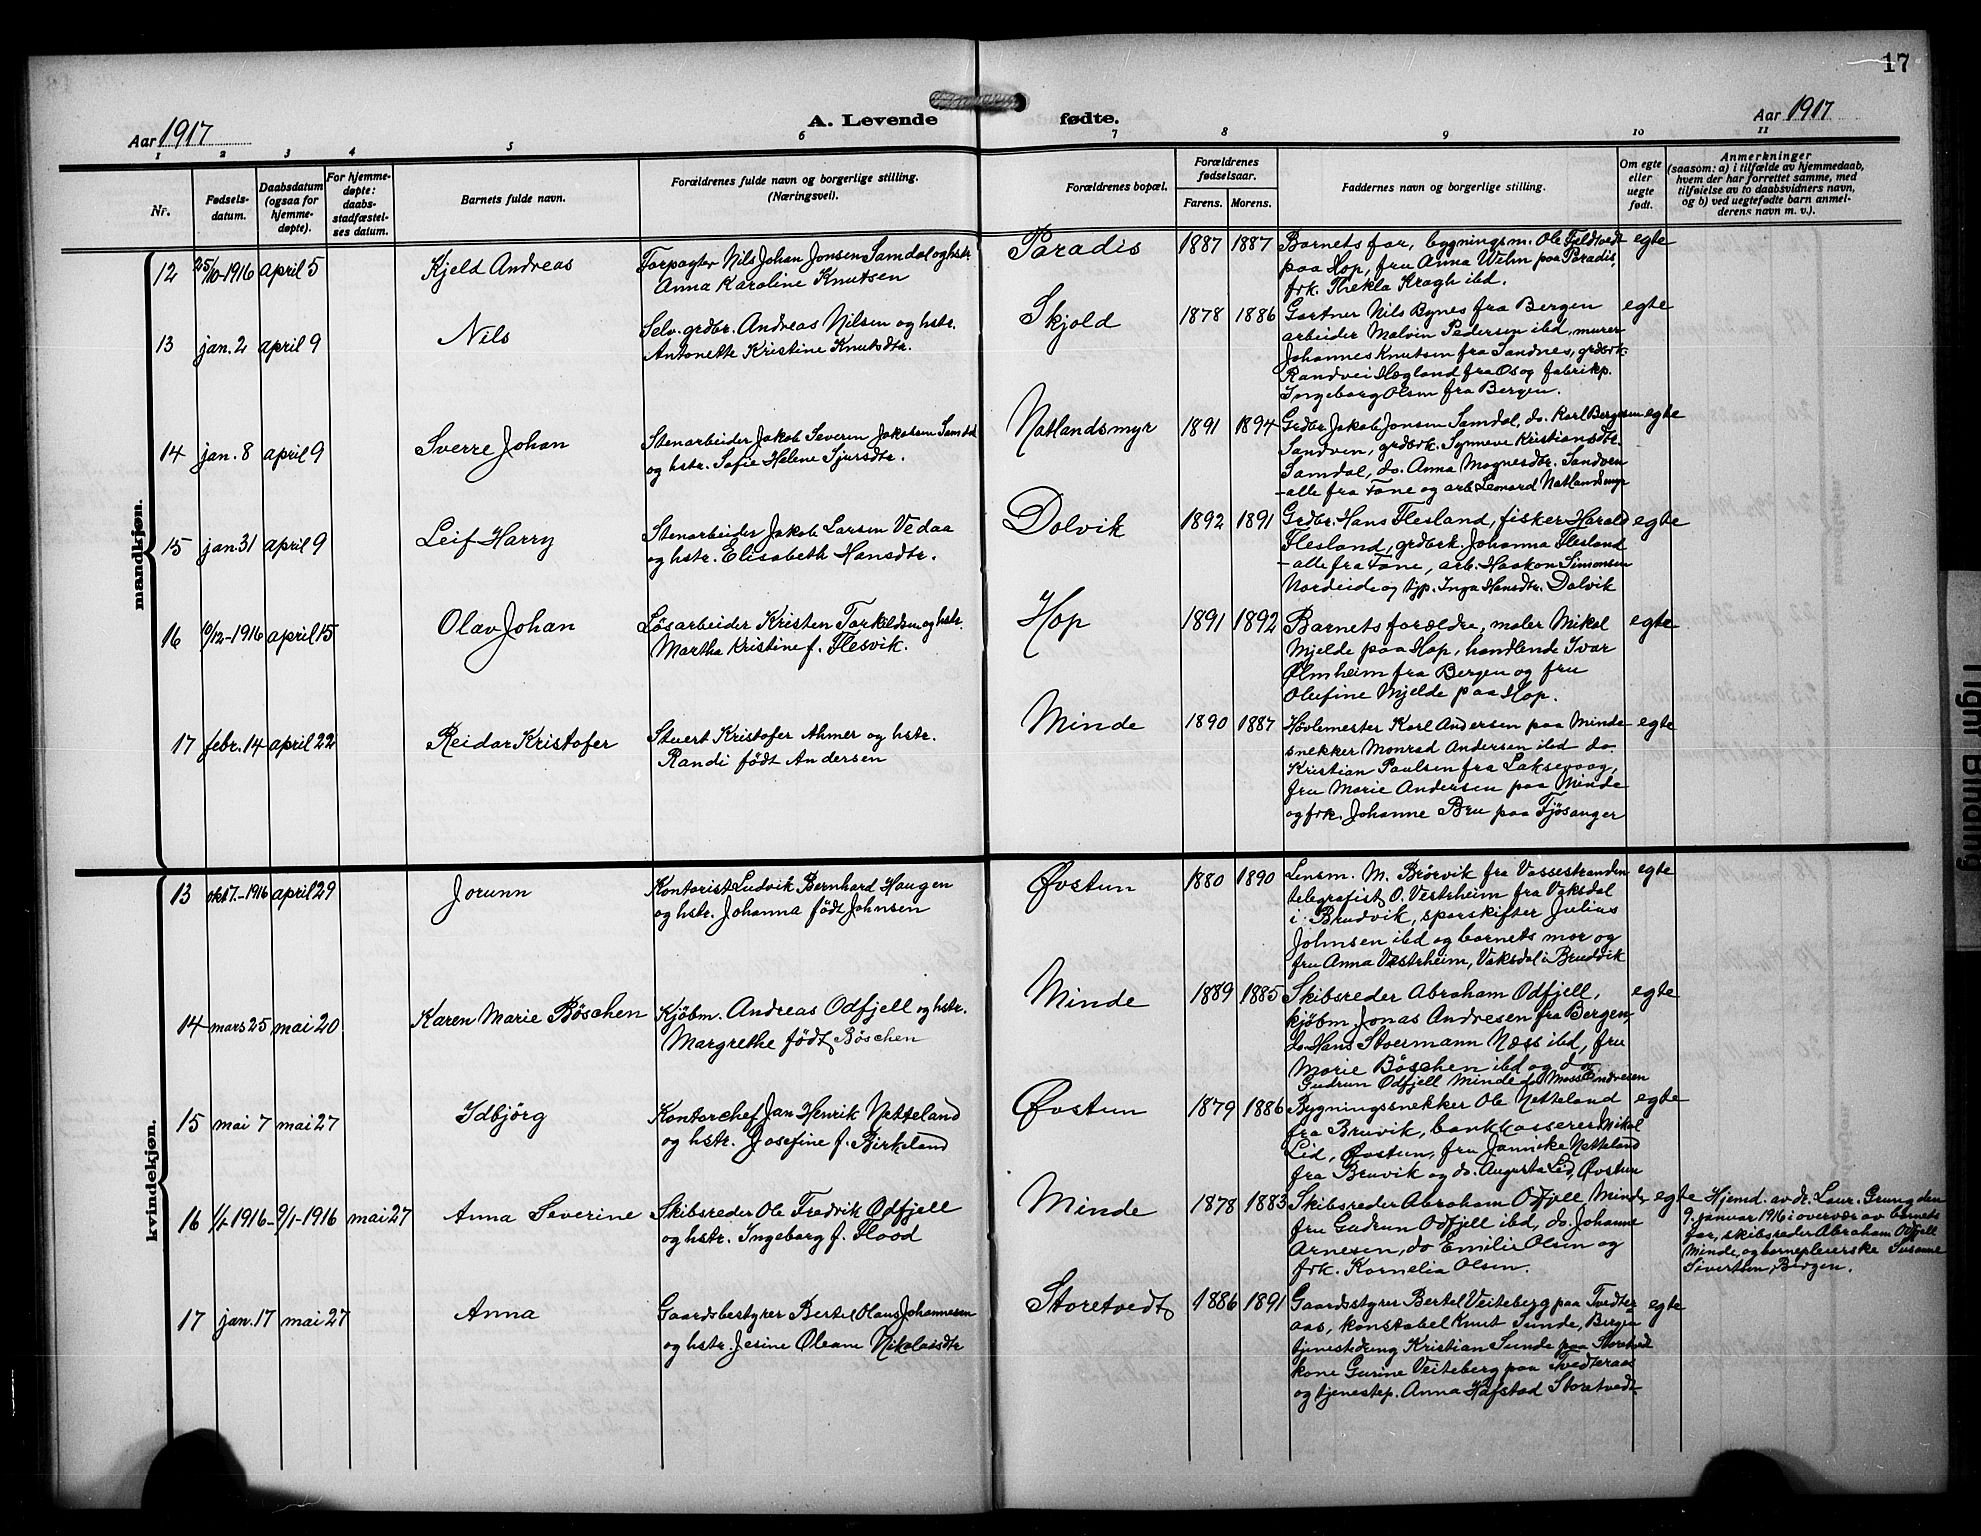 17
Aar 1917
A. Levende fødte.
Aar 1917
1 2 3 4 5 6 7 8 9 10 11
Nr.
Fødsels-
datum.
Daabsdatum
(ogsaa for
hjemme-
døpte).
For hjemme-
døpte:
daabs-
stadfæstel-
ses datum.
Barnets fulde navn.
Forældrenes fulde navn og borgerlige stilling.
(Næringsvei).
Forældrenes bopæl.
Forældrenes
fødselsaar.
Farens. Morens.
Faddernes navn og borgerlige stilling.
Om egte
eller
uegte
født.
Anmerkninger
(saasom: a) i tilfælde av hjemmedaab,
hvem der har forrettet samme, med
tilføielse av to daabsvidners navn,
og b) ved uegtefødte barn anmel-
derens navn m. v.).
mandkjøn.
12 25/10-1916 april 5
Kjeld Andreas
Forpagter Nils Johan Jonsen Samdal og hstr.
Anna Karoline Knutsen
Paradis 1887 1887
Barnets far, bygningsm. Ole Fjeldtvedt
paa Hop, fru Anna Wehn paa Paradis,
frk. Thekla Kragh ibd.
egte
13 jan. 2 april 9
Nils
Selv. grdbr. Andreas Nilsen og hstr.
Antonette Kristine Knutsdtr.
Skjold 1878 1886
Gartner Nils Bynes fra Bergen
arbeider Malvin Pedersen ibd, murer
Johannes Knutsen fra Sandnes, grdbrk.
Randvei Hægland fra Os og fabrikp.
Ingeborg Olsen fra Bergen.
egte
14 jan. 8 april 9
Sverre Johan
Stenarbeider Jakob Severin Jakobsen Samdal
og hstr. Sofie Helene Sjursdtr.
Natlandsmyr 1891 1894
Grdbr. Jakob Jonsen Samdal, do. Karl Bergesen
Sandven, grdbrk. Synneve Kristiansdtr.
Samdal, do. Anna Magnesdtr. Sandven
- alle fra Fane og arb. Leonard Natlandsmyr
egte
15 jan. 31 april 9
Leif Harry
Stenarbeider Jakob Larsen Vedaa
og hstr. Elisabeth Hansdtr.
Dolvik 1892 1891
Grdbr. Hans Flesland, fisker Harald
Flesland, grdbrk. Johanna Flesland
- alle fra Fane, arb. Haakon Simonsen
Nordeide og tjp. Inga Hansdtr. Dolvik
egte
16 /12-1916 april 15
Olav Johan
Løsarbeider Kristen Torkildsen og hstr.
Martha Kristine f. Flesvik.
Hop 1891 1892
Barnets forældre, maler Mikal
Mjelde paa Hop, handlende Ivar
Ølmheim fra Bergen og fru
Olufine Mjelde paa Hop.
egte
17 febr. 14 april 22
Reidar Kristofer
Stuert Kristofer Athmer og hstr.
Randi født Andersen
Minde 1890 1887
Høvlemester Karl Andersen paa Minde
snekker Monrad Andersen ibd do.
Kristian Paulsen fra Laksevaag,
fru Marie Andersen paa Minde
og frk. Johanne Bru paa Fjøsanger
egte
kvindekjøn.
13 okt 17.-1916 april 29
Jorunn
Kontorist Ludvik Bernhard Haugen
og hstr. Johanna født Johnsen
Øvstun 1880 1890
Lensm. M. Brørvik fra Vossestranden
telegrafist O. Vestrheim fra Vaksdal
i Brudvik, sporskifter Julius
Johnsen ibd og barnets mor og
fru Anna Vestrheim, Vaksdal i Brudvik
egte
14 mars 25 mai 20
Karen Marie Böschen
Kjøbm. Andreas Odfjell og hstr.
Margrethe født Böschen
Minde 1889 1885
Skibsreder Abraham Odfjell,
kjøbm. Jonas Andresen fra Bergen,
do Hans Stoermann Næss ibd, fru
Marie Böschen ibd og do
Gudrun Odfjell Minde
egte
15 mai 7 mai 27
Idbjörg
Kontorchef Jan Henrik Netteland
og hstr. Josefine f. Birkeland
Øvstun 1879 1886
Bygningssnekker Ole Netteland
fra Bruvik, bankkasserer Mikal
Lid, Øvstun, fru Jannike Netteland
fra Bruvik og do. Augusta Lid, Øvstun
egte
16 1/1 1916- 9/1-1916 mai 27
Anna Severine
Skibsreder Ole Fredrik Odfjell
og hstr. Ingeborg f. Flood
Minde 1878 1883
Skibsreder Abraham Odfjell Minde
fru Gudrun Odfjell ibd, do. Johanne
Arnesen, do Emilie Olsen og
frk. Kornelia Olsen.
egte
Hjemd. av dr. Laur. Grung den
9. januar 1916 i overvær av barnets
far, skibsreder Abraham Odfjell
Minde, og barnepleierske Susanne
Sivertsen, Bergen.
17 jan. 17 mai 27
Anna
Gaardsbestyrer Bertel Olaus Johannesen
og hstr. Jesine Oleane Nikolaisdtr
Storetvedt 1886 1891
Gaardsstyrer Bertel Veiteberg paa Tvedter-
aas, konstabel Knut Sunde, Bergen
tjenestedreng Kristian Sunde paa Storetvedt
kone Gurine Veiteberg paa Tvedteraas
og tjenestep. Anna Hafstad Storetvedt
egte
Tight Binding